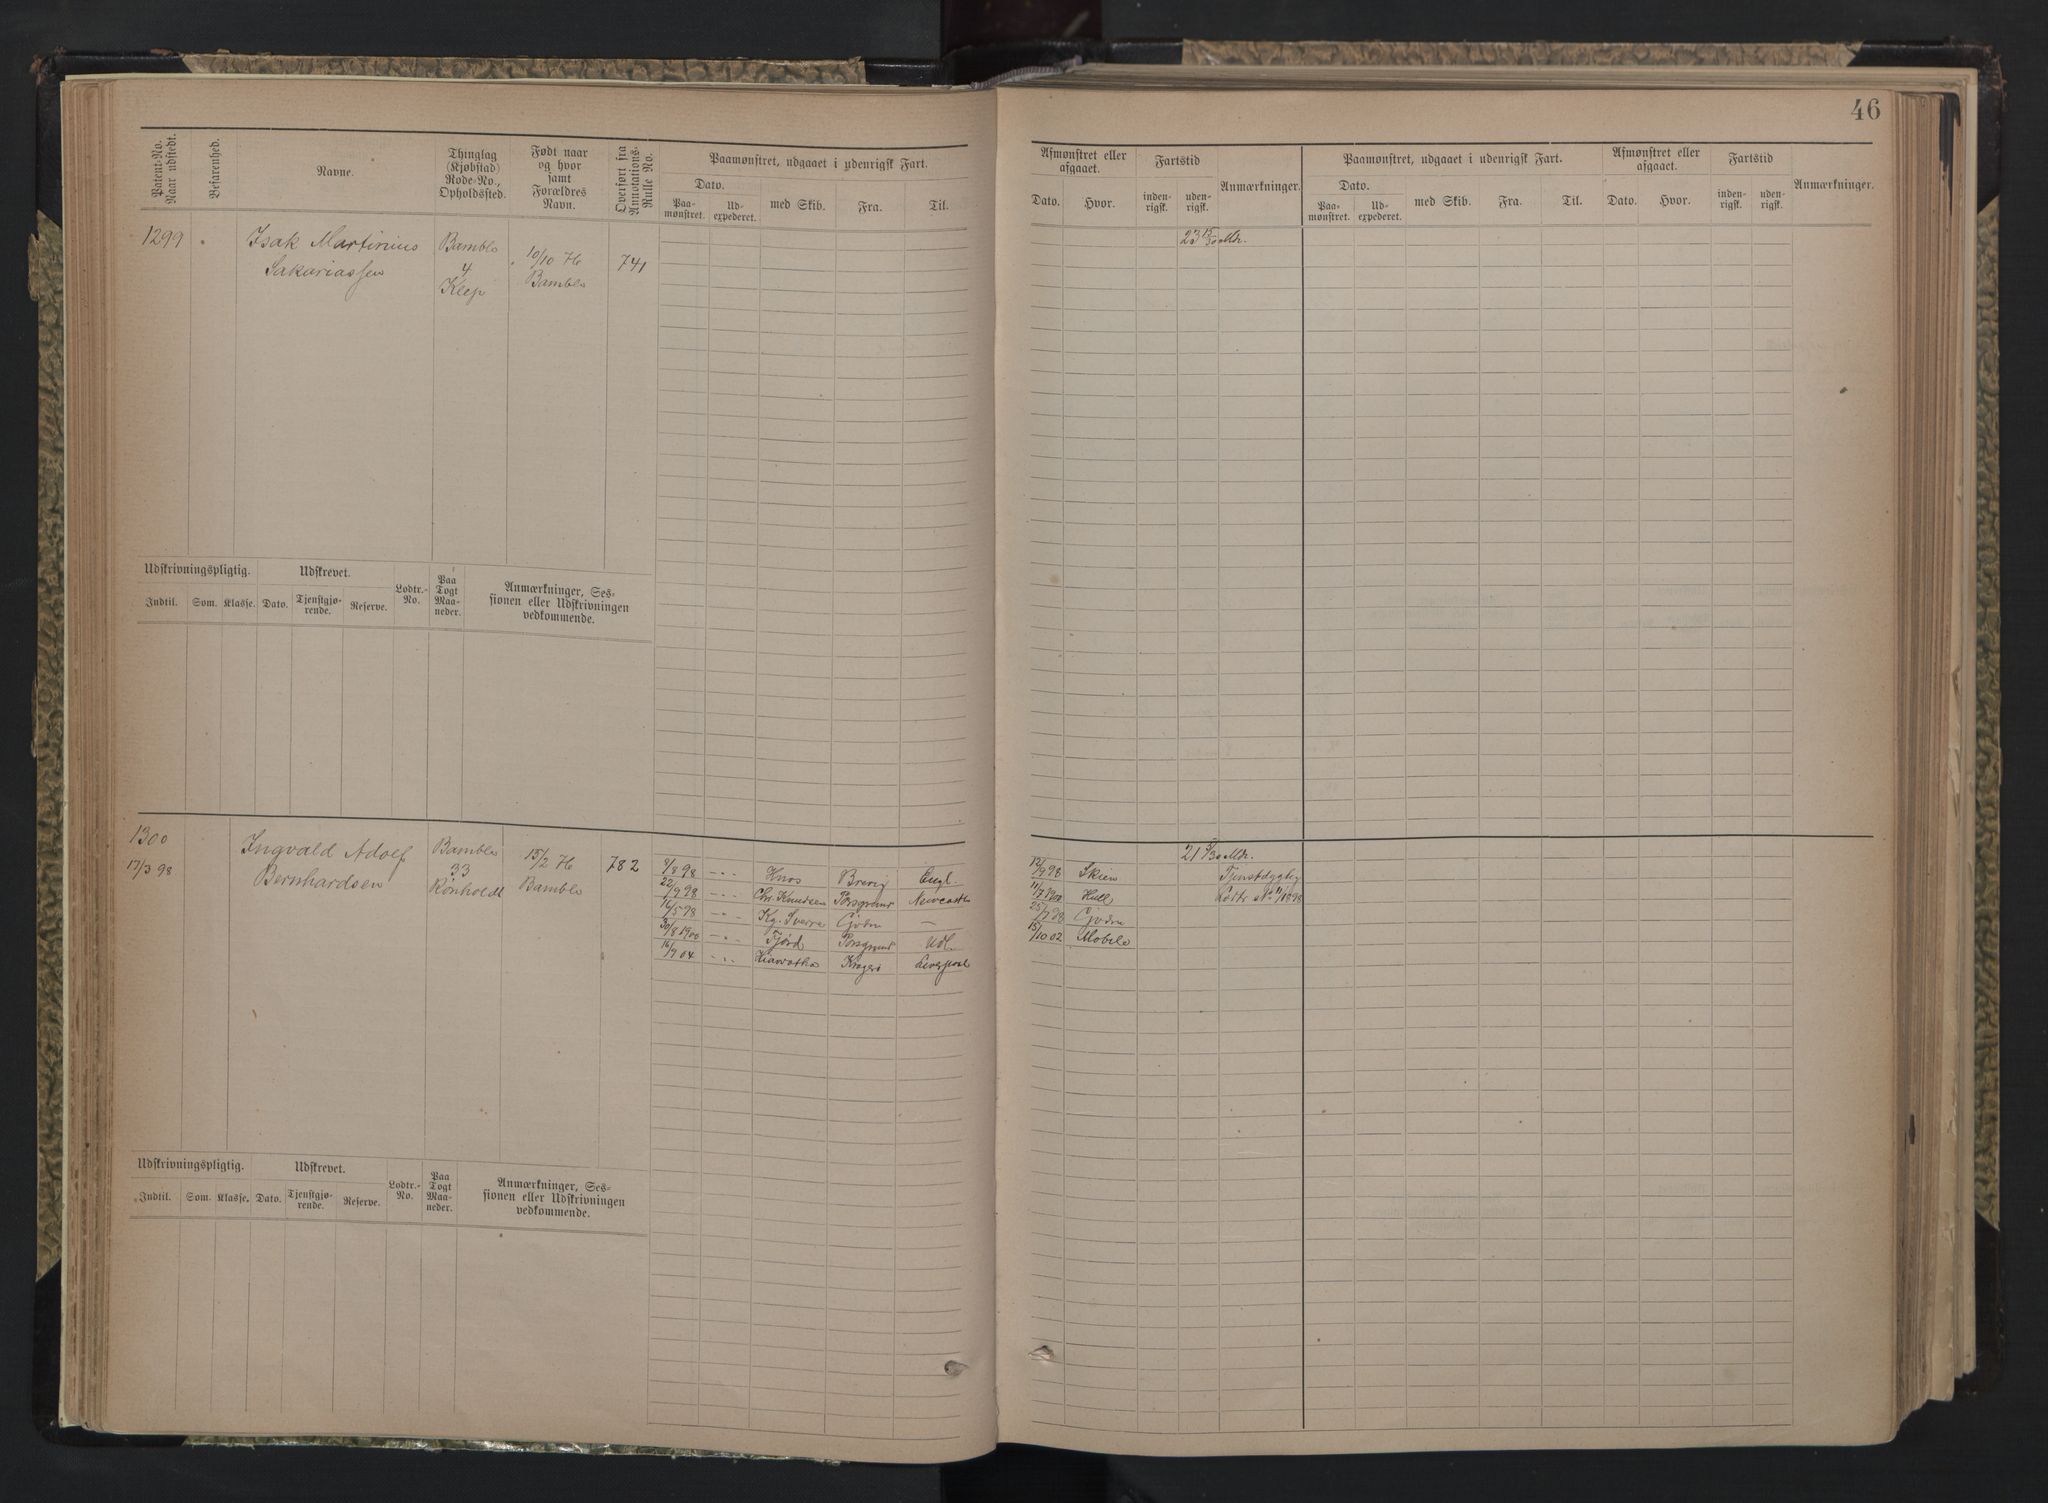 46
Patent-No. Naar udstedt.
Befarenhed.
Navne.
Thinglag (Kjøbstad) Rode-No., Opholdssted.
Født naar og hvor samt Forældres Navn.
Overført fra Annotations-Rulle No.
Paamønstret, udgaaet i udenrigsk Fart.
Dato.
Paamønstret. Udexpederet. med Skib. Fra. Til.
Afmønstret eller afgaaet. Fartstid
Dato. Hvor. indenrigsk. udenrigsk. Anmærkninger.
Paamønstret, udgaaet i udenrigsk Fart. Afmønstret eller afgaaet. Fartstid
Dato.
Paamønstret. Udexpederet. med Skib. Fra. Til. Dato. Hvor. indenrigsk. udenrigsk. Anmærkninger.
1299 Isak Martinius Bamble 10/10 76 741 23 15/30 Mdr.
Sakariassen 4 Bamble
Klep
Udskrivningspligtig. Udskrevet. Lodtr.-No. Paa Togt Maaneder. Anmærkninger, Sessionen eller Udskrivningen vedkommende.
Indtil. Som. Klasse. Dato. Tjenstgjørende. Reserve.
1300 Ingvald Adolf Bamble 15/2 76 782 21 5/30 Mdr.
17/3 98 Bernhardsen 33 Bamble
Rönholdt
9/8 98 Knos Brevig Engl. 12/9 98 Skien Tjenstdygtig
22/9 98 Chr. Knudsen Porsgrund Newcastle 11/7 1900 Hull Lodtr No 11/1898
16/5 98 Kg. Sverre Gjvdn — 25/7 98 Gjvdn
30/8 1900 Fjord Porsgrund Udl. 15/10 02 Mobile
16/9 04 Hiawatha Kragerö Liverpool
Udskrivningspligtig. Udskrevet. Lodtr.-No. Paa Togt Maaneder. Anmærkninger, Sessionen eller Udskrivningen vedkommende.
Indtil. Som. Klasse. Dato. Tjenstgjørende. Reserve.